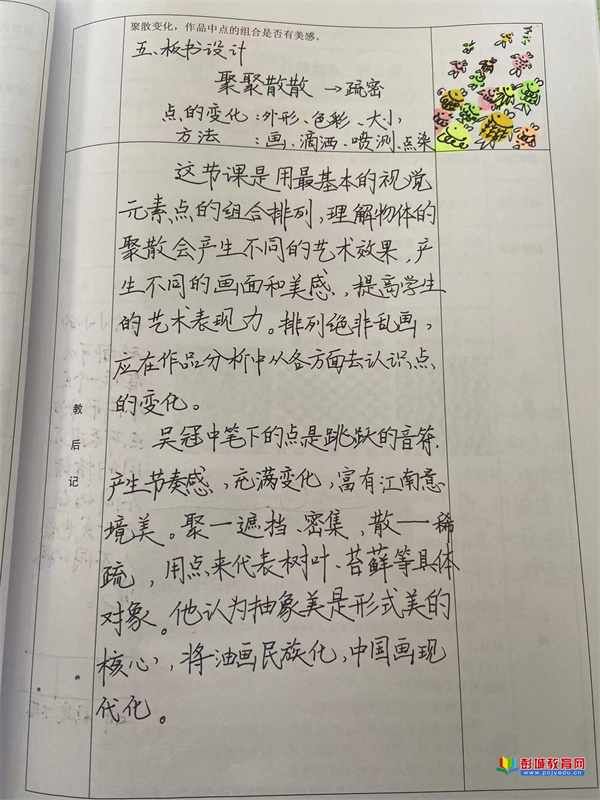 聚散变化，作品中点的组合是否有美感。
五、板书设计
聚聚散散 →疏密
点的变化：外形、色彩、大小
方法：画、滴洒、喷测、点染
这节课是用最基本的视觉
元素点的组合排列，理解物体的
聚散会产生不同的艺术效果，产
生不同的画面和美感，提高学生
的艺术表现力。排列绝非乱画，
应在作品分析中从各方面去认识点
的变化。
教后记
吴冠中笔下的点是跳跃的音符，
产生节奏感，充满变化，富有江南意
境美。聚—遮挡、密集，散—稀
疏，用点来代表树叶、苔藓等具体
对象。他认为抽象美是形式美的
核心，将油画民族化，中国画现
代化。
彭城教育网
www.pcjyedu.cn/